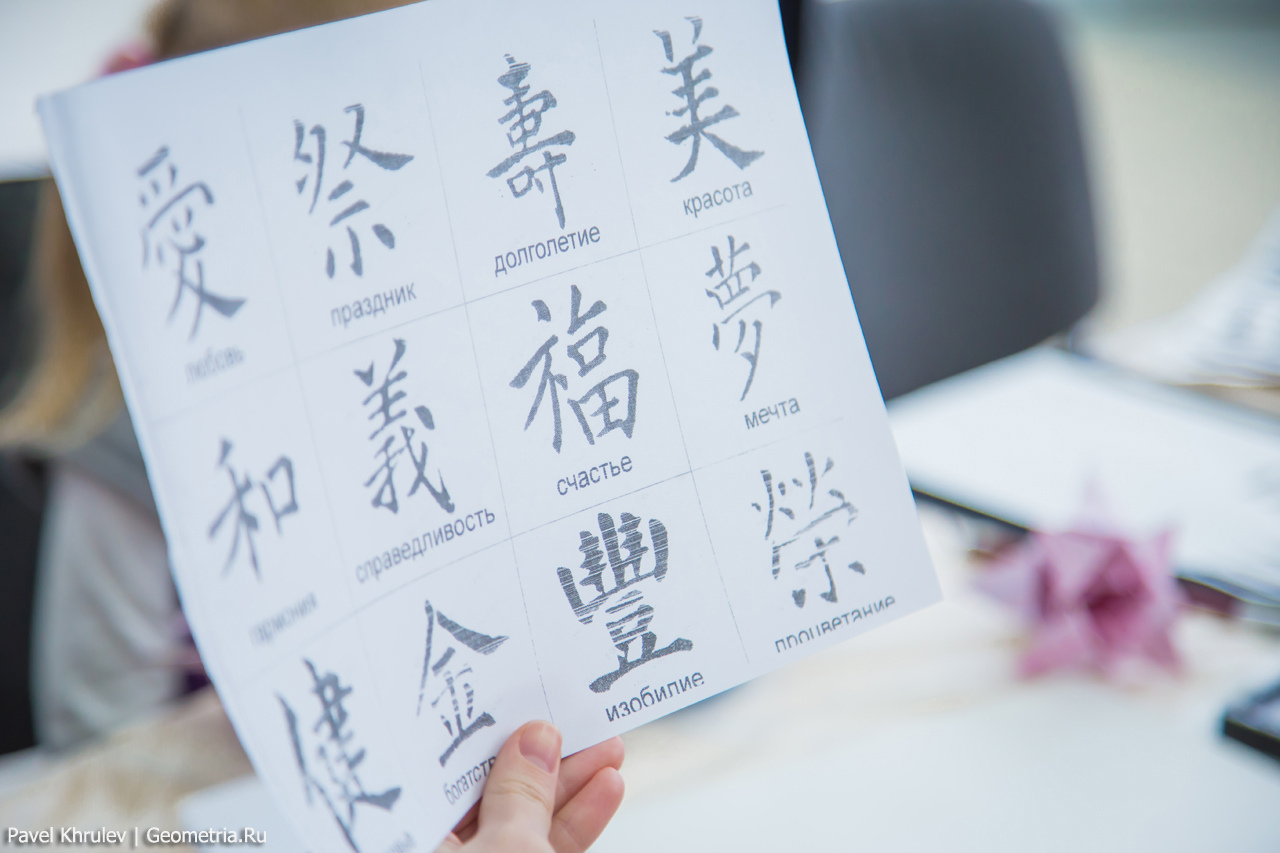 愛 祭 壽 美
любовь праздник долголетие красота
和 義 福 夢
гармония справедливость счастье мечта
健 金 豐 榮
богатств изобилие процветание
Pavel Khrulev | Geometria.Ru